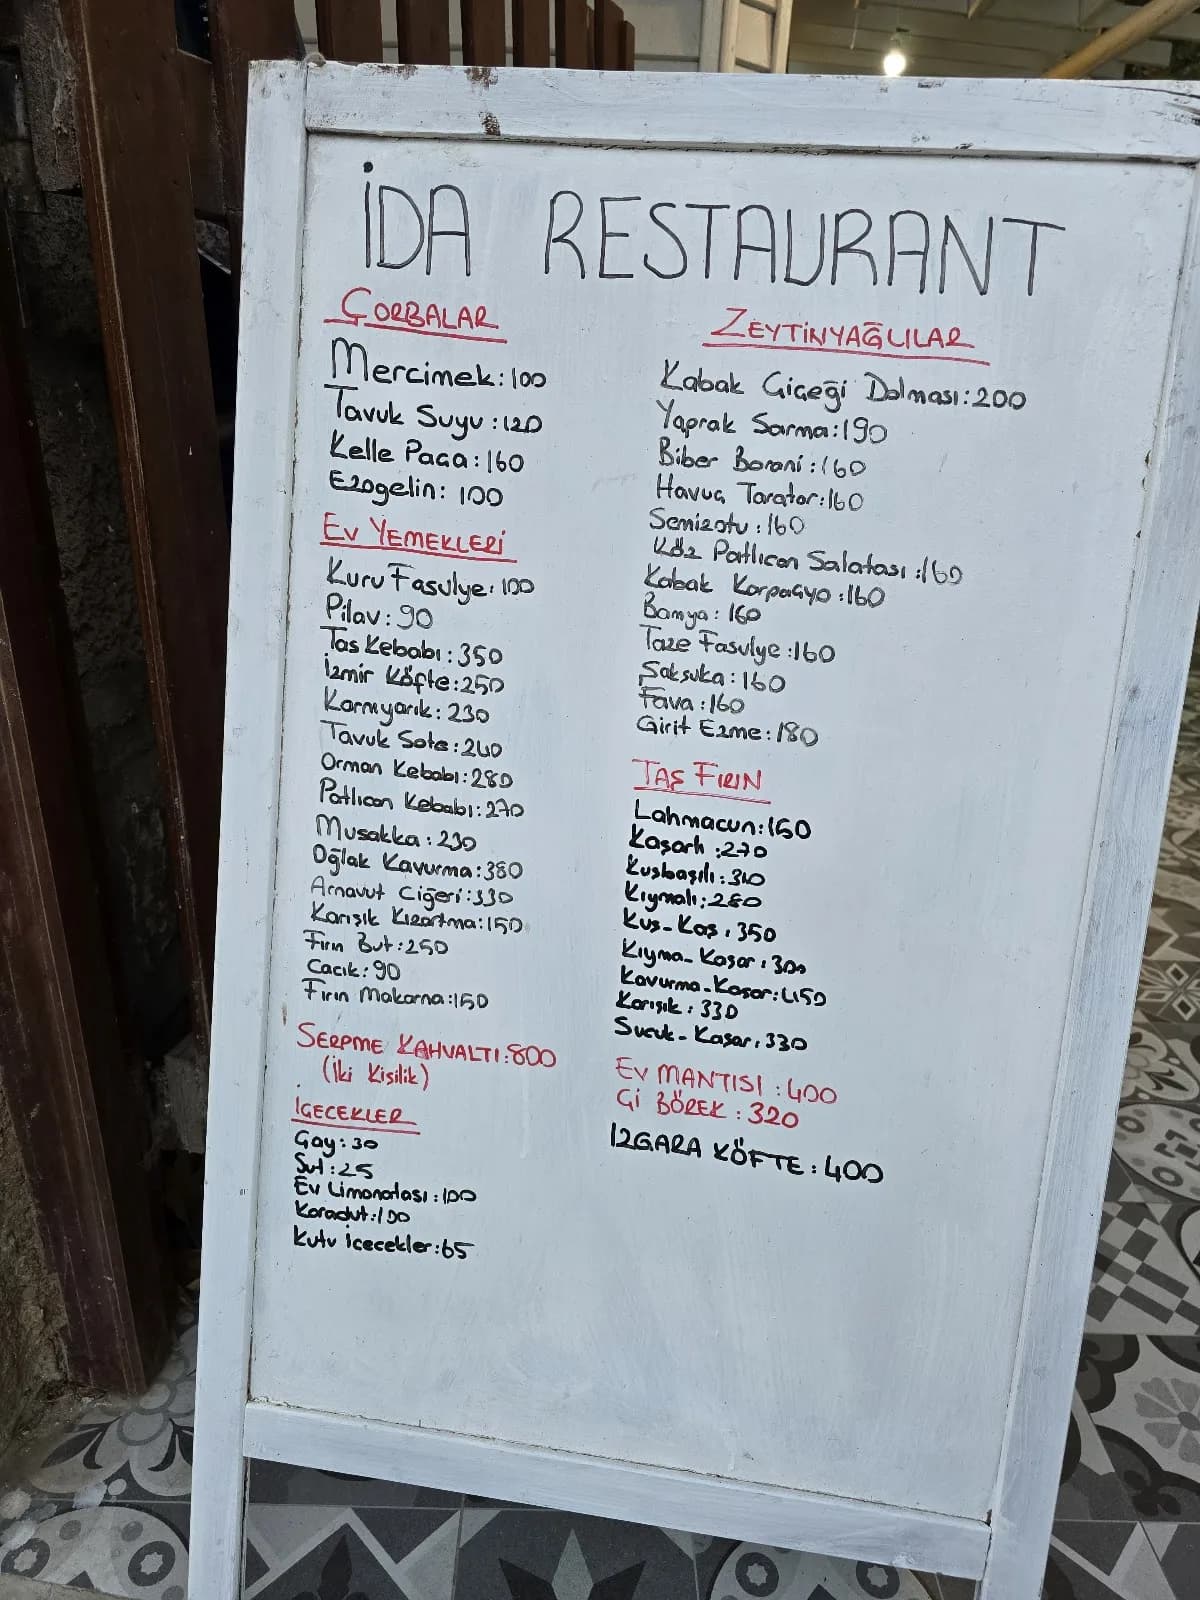 İDA RESTAURANT
ÇORBALAR
Mercimek: 100
Tavuk Suyu: 120
Kelle Paça: 160
Ezogelin: 100
EV YEMEKLERİ
Kuru Fasulye: 100
Pilav: 90
Tas Kebabı: 350
İzmir Köfte: 250
Karnıyarık: 230
Tavuk Sote: 240
Orman Kebabı: 280
Patlıcan Kebabı: 270
Musakka: 230
Oğlak Kavurma: 380
Arnavut Ciğeri: 330
Karışık Kızartma: 150
Fırın But: 250
Cacık: 90
Fırın Makarna: 150
SERPME KAHVALTI: 800
(İki Kişilik)
İÇECEKLER
Çay: 30
Su: 25
Ev Limonatası: 100
Karadut: 100
Kutu İçecekler: 65
ZEYTİNYAĞLILAR
Kabak Çiçeği Dolması: 200
Yaprak Sarma: 190
Biber Borani: 160
Havuç Tarator: 160
Semizotu: 160
Köz Patlıcan Salatası: 160
Kabak Karpaçyo: 160
Bamya: 160
Taze Fasulye: 160
Şakşuka: 160
Fava: 160
Girit Ezme: 180
TAŞ FIRIN
Lahmacun: 150
Kaşarlı: 270
Kuşbaşılı: 310
Kıymalı: 280
Kuş-Kaş: 350
Kıyma-Kaşar: 300
Kavurma-Kaşar: 450
Karışık: 330
Sucuk-Kaşar: 330
EV MANTISI: 400
Çİ BÖREK: 320
IZGARA KÖFTE: 400